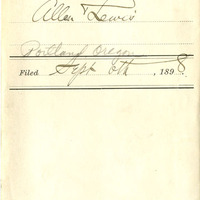 Allen & Lewis
Portland Oregon
Filed Sept 6th, 1898.